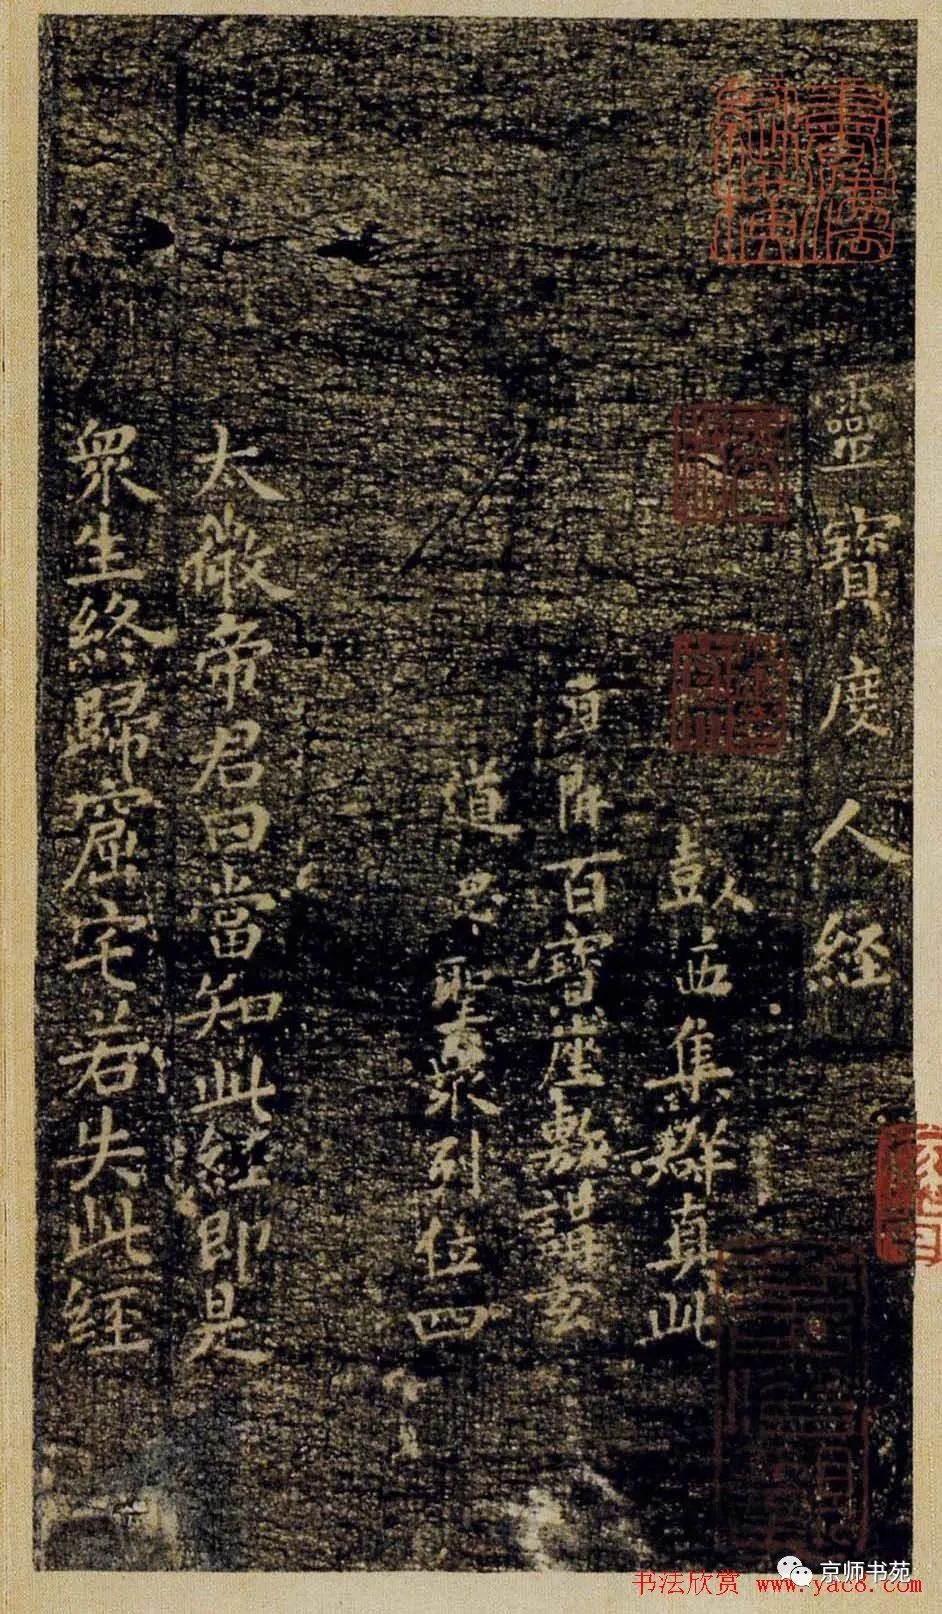 靈寶度人經
集群真此
百寶座敷講玄
道
聖眾列位四
太微帝君曰當知此經即是
眾生終歸窟宅若失此經
京师书苑
书法欣赏 www.yac8.com